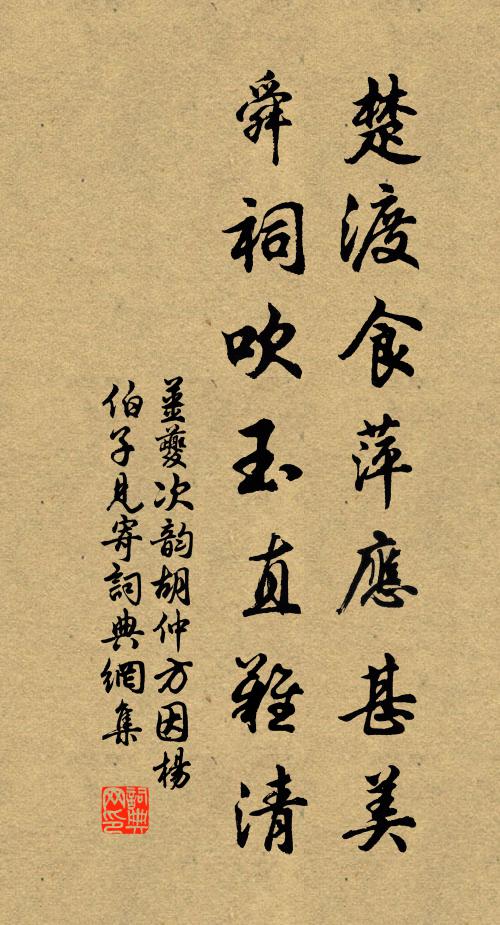 楚渡食萍應甚美
舜祠吹玉直難清
姜夔次韵胡仲方因楊
伯子見寄詞典網集
詞典网印